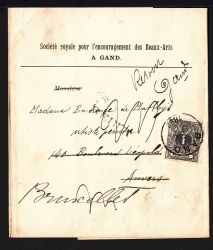 Société royale pour l'encouragement des Beaux-Arts
A GAND.
Retour
Gand
Monsieur
Madame
artiste peintre
140 Boulevard Léopold
Anvers
Bruxelles